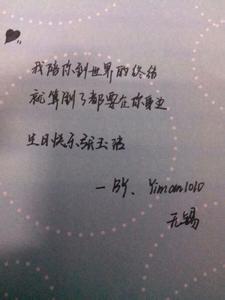 我陪你到世界的终结
就算倒了都要在你身边
生日快乐张玉洁
一 BY、Yiman1010
无锡